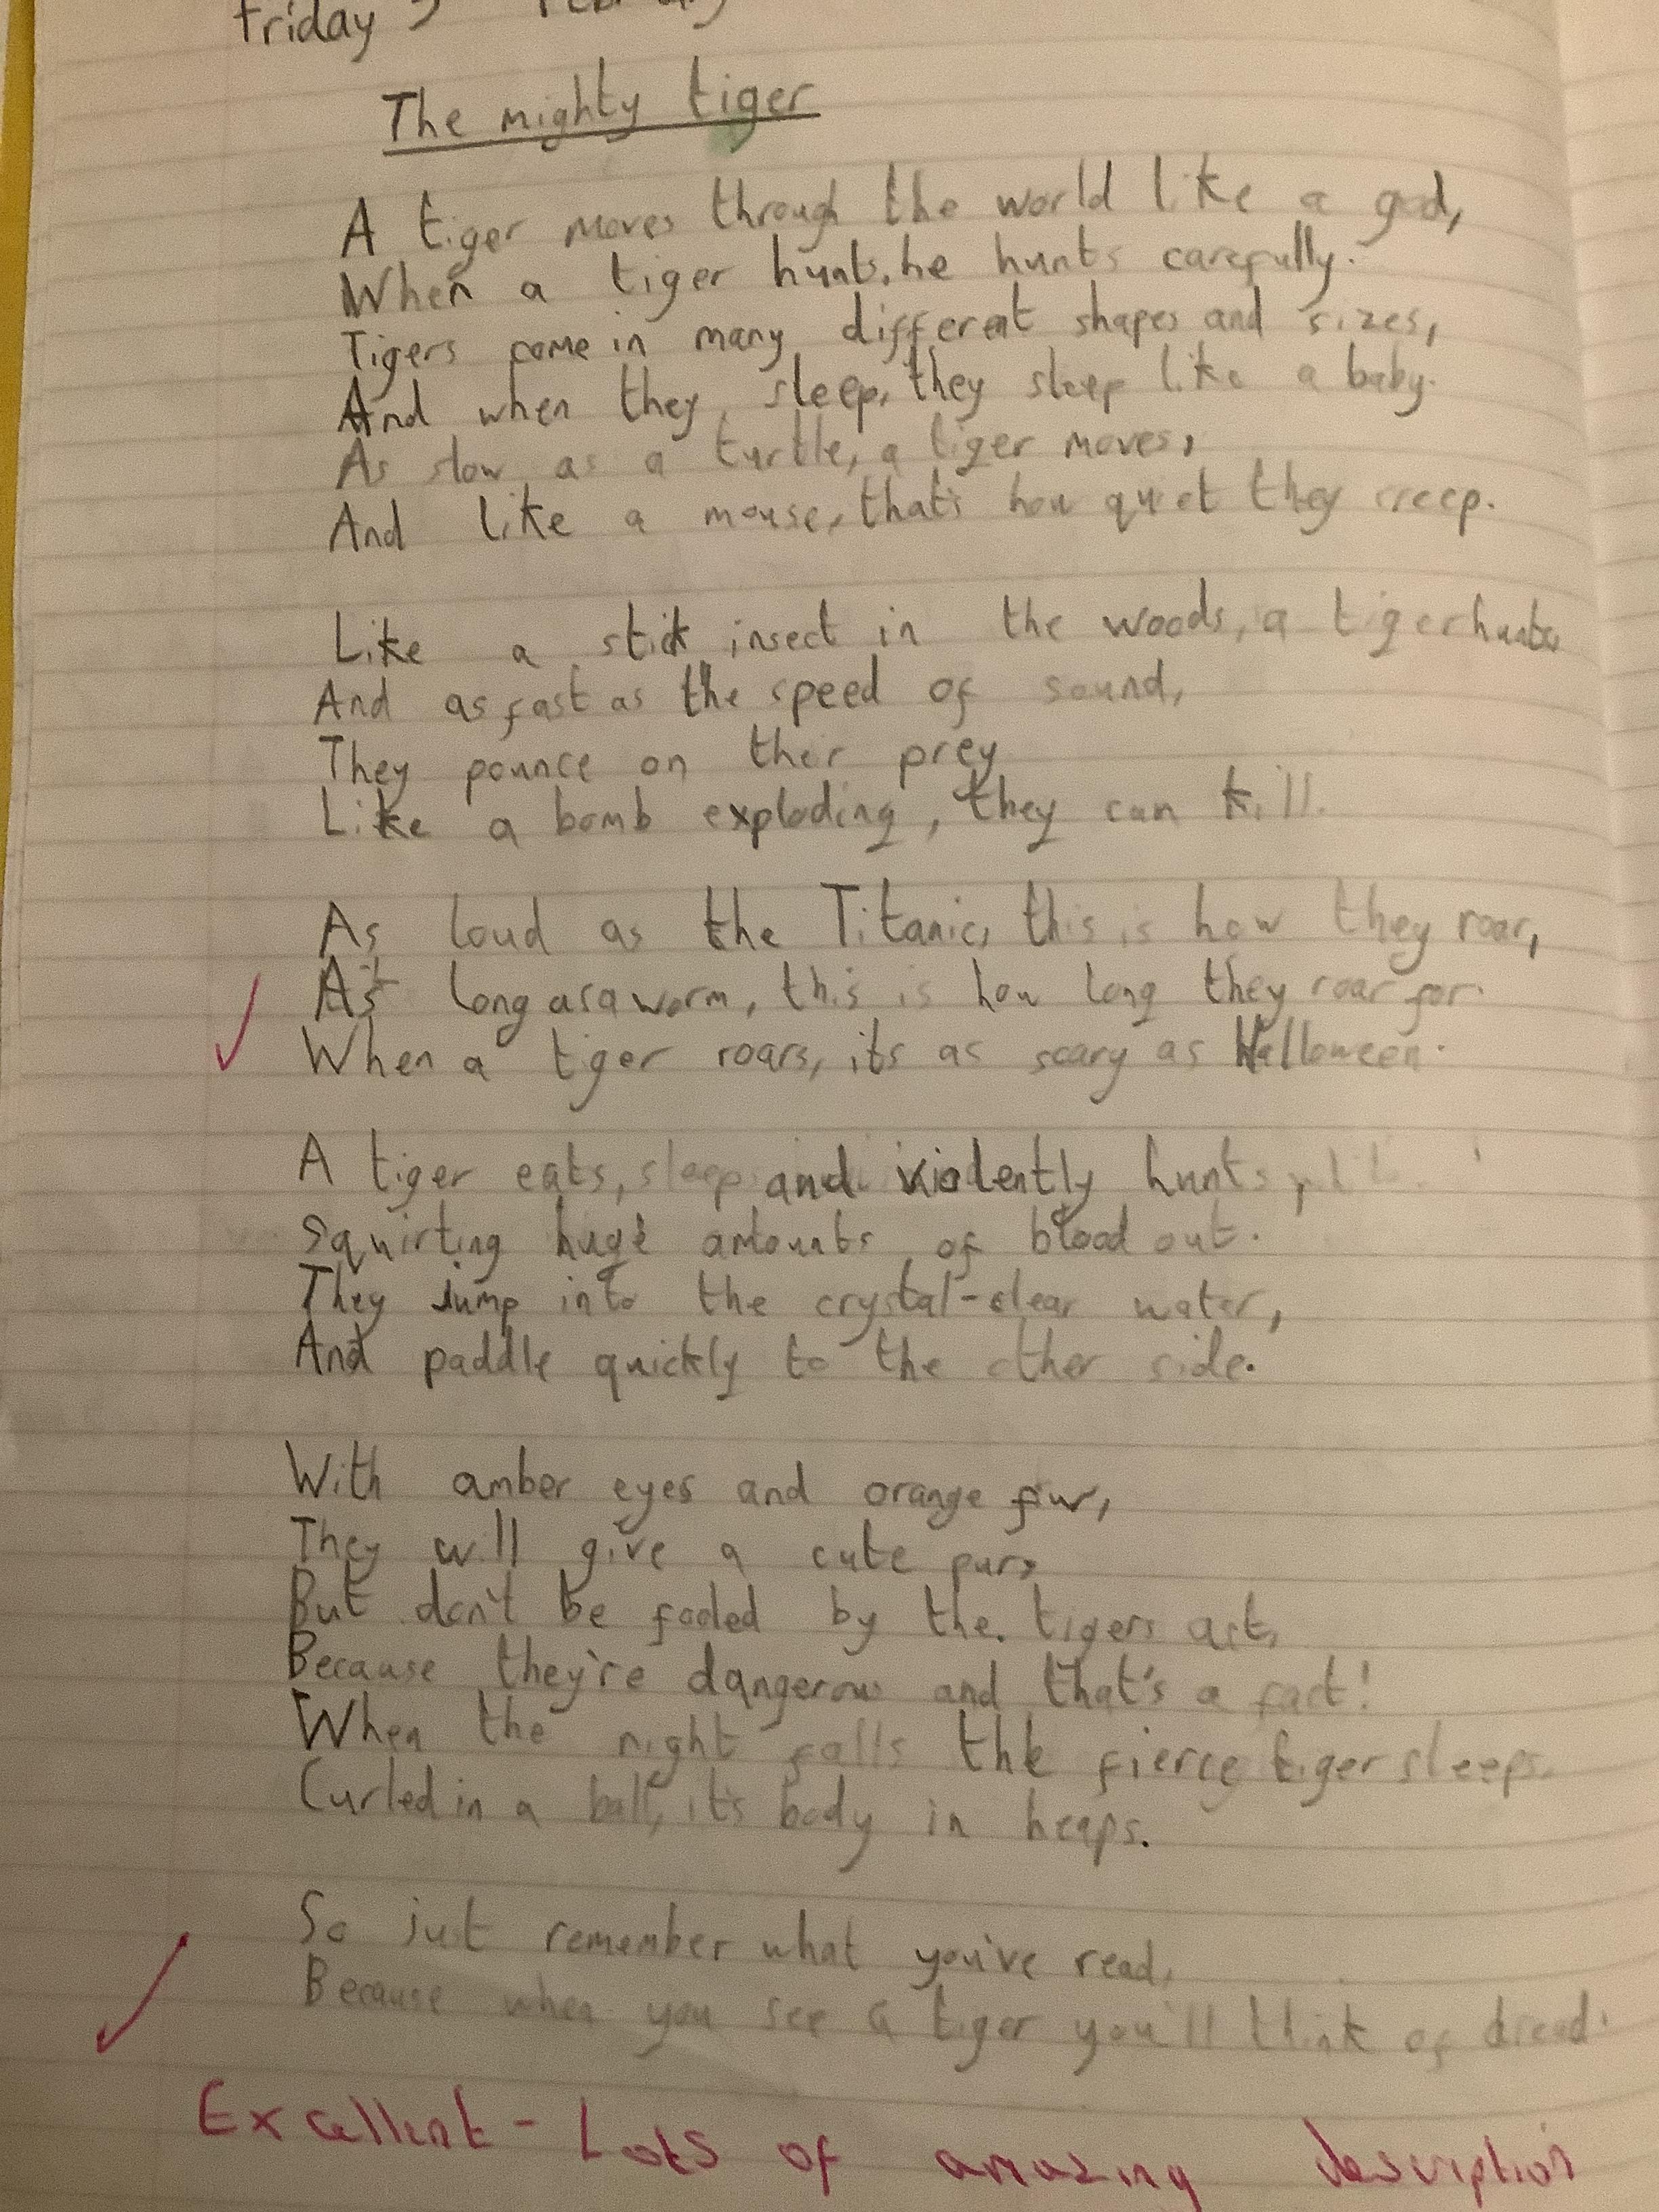 Friday
The mighty tiger
A tiger moves through the world like a god,
When a tiger hunts, he hunts carefully.
Tigers come in many different shapes and sizes,
And when they sleep, they sleep like a baby.
As slow as a turtle, a tiger moves,
And like a mouse, that's how quiet they creep.
Like a stick insect in the woods, a tiger hunts,
And as fast as the speed of sound,
They pounce on their prey
Like a bomb exploding, they can kill.
As loud as the Titanic, this is how they roar,
As long as a worm, this is how long they roar for.
When a tiger roars, its as scary as Halloween.
A tiger eats, sleeps and violently hunts,
Squirting huge amounts of blood out.
They jump into the crystal-clear water,
And paddle quickly to the other side.
With amber eyes and orange fur,
They will give a cute purr,
But don't be fooled by the tigers act,
Because they're dangerous and that's a fact!
When the night falls the fierce tiger sleeps.
Curled in a ball, it's body in heaps.
So just remember what you've read,
Because when you see a tiger you'll think of dread.
Excellent - Lots of amazing description